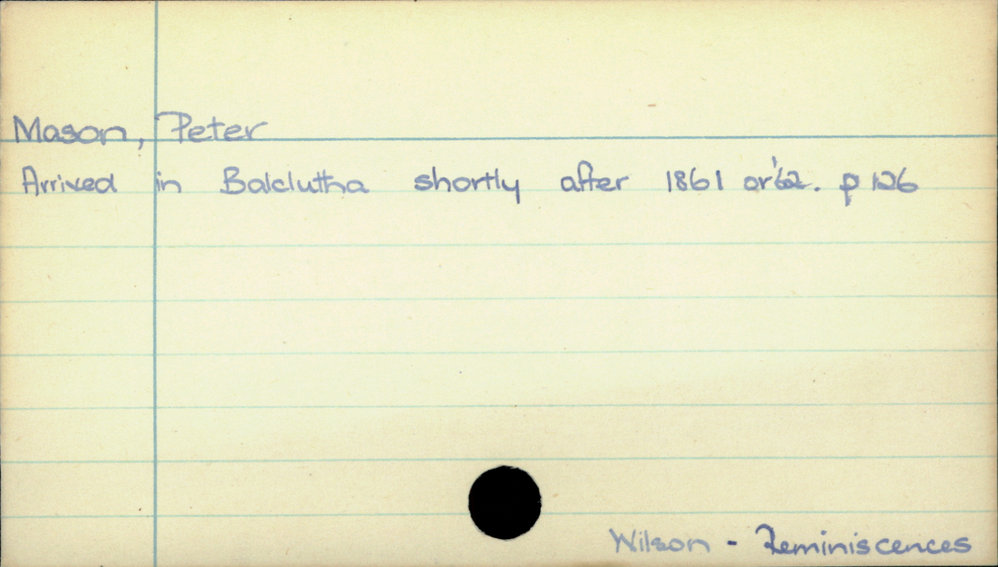 Mason, Peter
Arrived in Balclutha shortly after 1861 or '62. p 126
Wilson - Reminiscences